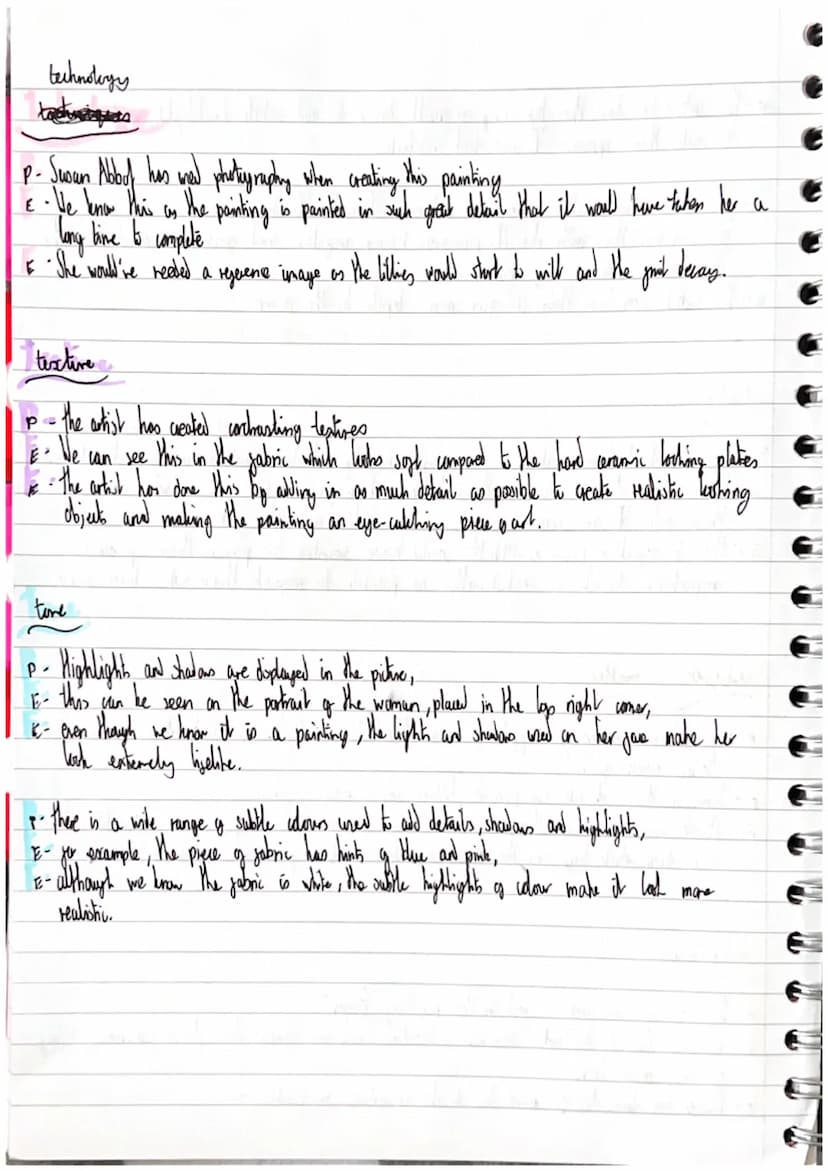 technology
techniques
P - Susan Abbot has used photography when creating this painting
E - We know this as the painting is painted in such great detail that it would have taken her a
long time to complete
E - She would've needed a reference image as the lillies would start to wilt and the fruit decays.
texture
P - the artist has created contrasting textures
E - We can see this in the fabric which looks soft compared to the hard ceramic looking plates
E - the artist has done this by adding in as much detail as possible to create realistic looking
objects and making the painting an eye-catching piece of art.
tone
P - Highlights and shadows are displayed in the picture,
E - this can be seen on the portrait of the woman, placed in the top right corner,
E - even though we know it is a painting, the lights and shadows used on her face make her
look extremely lifelike.
P - there is a wide range of subtle colours used to add details, shadows and highlights,
E - for example, the piece of fabric has hints of blue and pink,
E - although we know the fabric is white, the subtle highlights of colour make it look more
realistic.